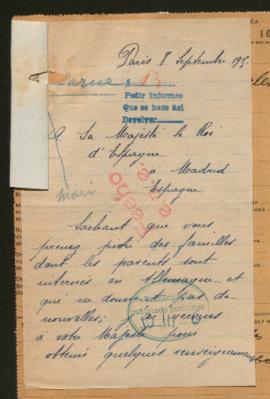 Paris 8 Septembre 19
13
Pedir informes
Que se hace aci
Devolver
A Sa Majesté le Roi
d'Espagne
à Madrid
Espagne
mari
Sachant que vous
prenez pitié des familles
dont les parents sont
internés en Allemagne et
qui ne donnent pas de
nouvelles; je
à votre Majesté pour
obtenir quelques renseignements